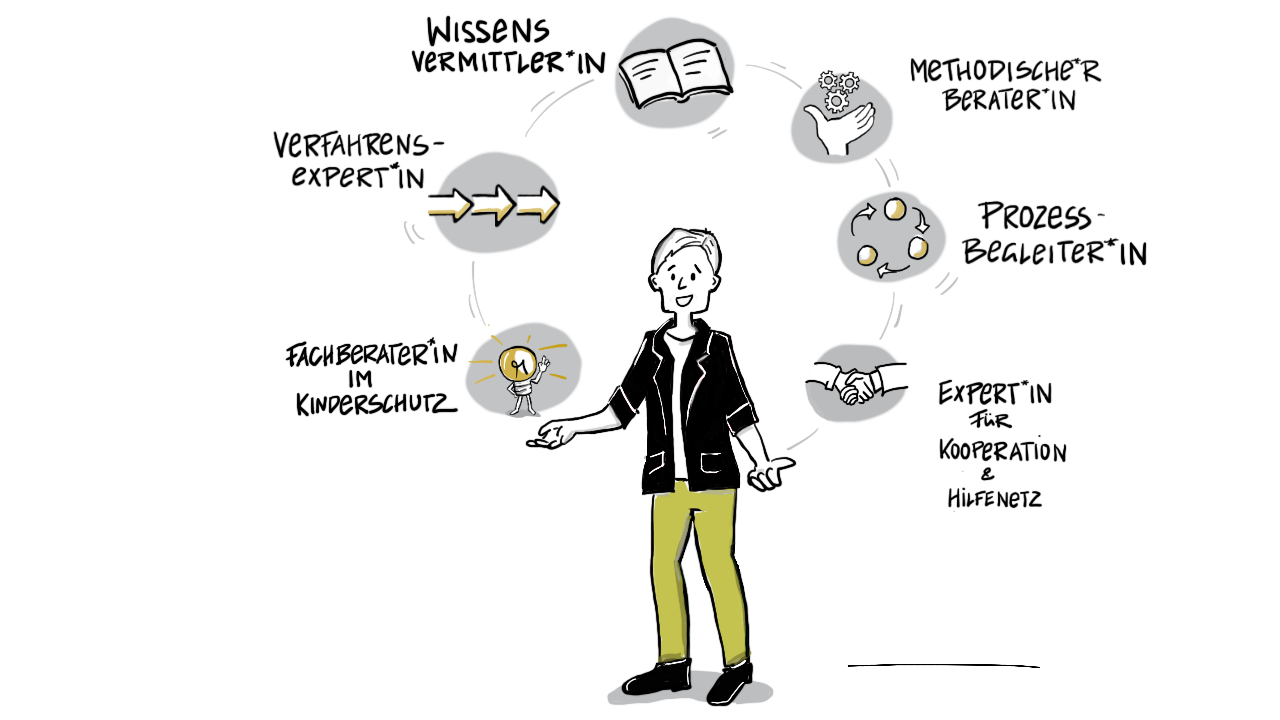 WISSENS
VERMITTLER*IN
METHODISCHE*R
BERATER*IN
VERFAHRENS-
EXPERT*IN
PROZESS-
BEGLEITER*IN
FACHBERATER*IN
IM
KINDERSCHUTZ
EXPERT*IN
FÜR
KOOPERATION
&
HILFENETZ